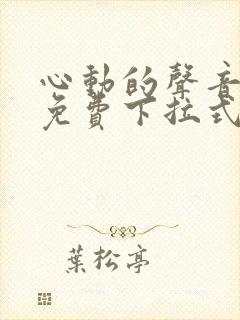 心動的聲音
免費下拉式
葉松亭